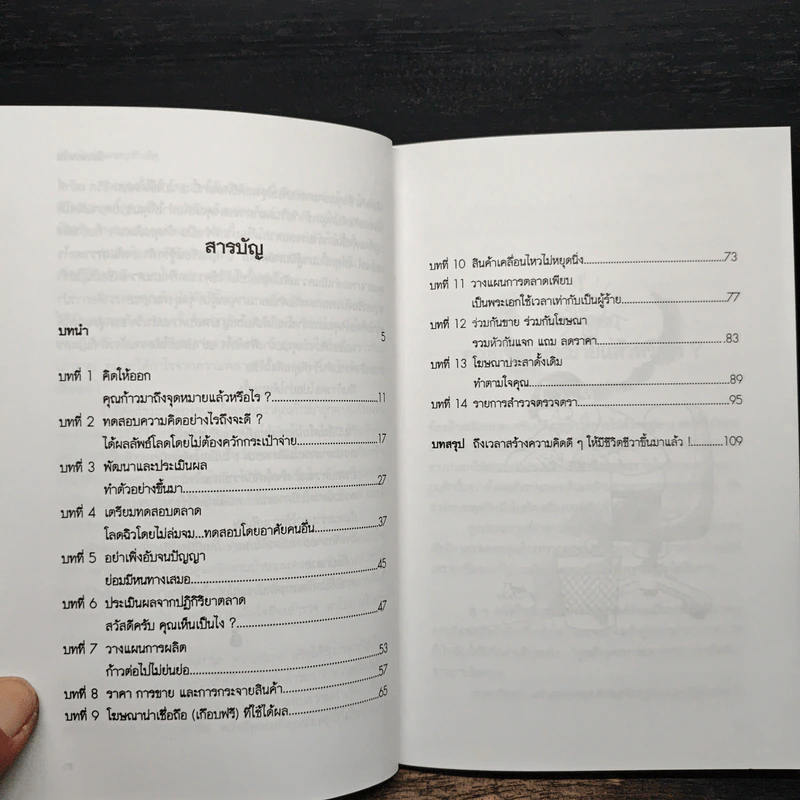 สารบัญ
บทนำ 5
บทที่ 1 คิดให้ออก
คุณก้าวมาถึงจุดหมายแล้วหรือไร ?..................11
บทที่ 2 ทดสอบความคิดอย่างไรถึงจะดี ?
ได้ผลลัพธ์โลดโดยไม่ต้องควักกระเป๋าจ่าย..................17
บทที่ 3 พัฒนาและประเมินผล
ทำตัวอย่างขึ้นมา..................27
บทที่ 4 เตรียมทดสอบตลาด
โลดฉิวโดยไม่ล่มจม...ทดสอบโดยอาศัยคนอื่น..................37
บทที่ 5 อย่าเพิ่งอับจนปัญญา
ย่อมมีหนทางเสมอ..................45
บทที่ 6 ประเมินผลจากปฏิกิริยาตลาด
สวัสดีครับ คุณเห็นเป็นไง ?..................47
บทที่ 7 วางแผนการผลิต 53
ก้าวต่อไปไม่ย่นย่อ..................57
บทที่ 8 ราคา การขาย และการกระจายสินค้า..................65
บทที่ 9 โฆษณาน่าเชื่อถือ (เกือบฟรี) ที่ใช้ได้ผล..................
บทที่ 10 สินค้าเคลื่อนไหวไม่หยุดนิ่ง..................73
บทที่ 11 วางแผนการตลาดเพียบ
เป็นพระเอกใช้เวลาเท่ากับเป็นผู้ร้าย..................77
บทที่ 12 ร่วมกันขาย ร่วมกันโฆษณา
รวมหัวกันแจก แถม ลดราคา..................83
บทที่ 13 โฆษณาประสาดั้งเดิม
ทำตามใจคุณ..................89
บทที่ 14 รายการสำรวจตรวจตรา..................95
บทสรุป ถึงเวลาสร้างความคิดดี ๆ ให้มีชีวิตชีวาขึ้นมาแล้ว !...........109